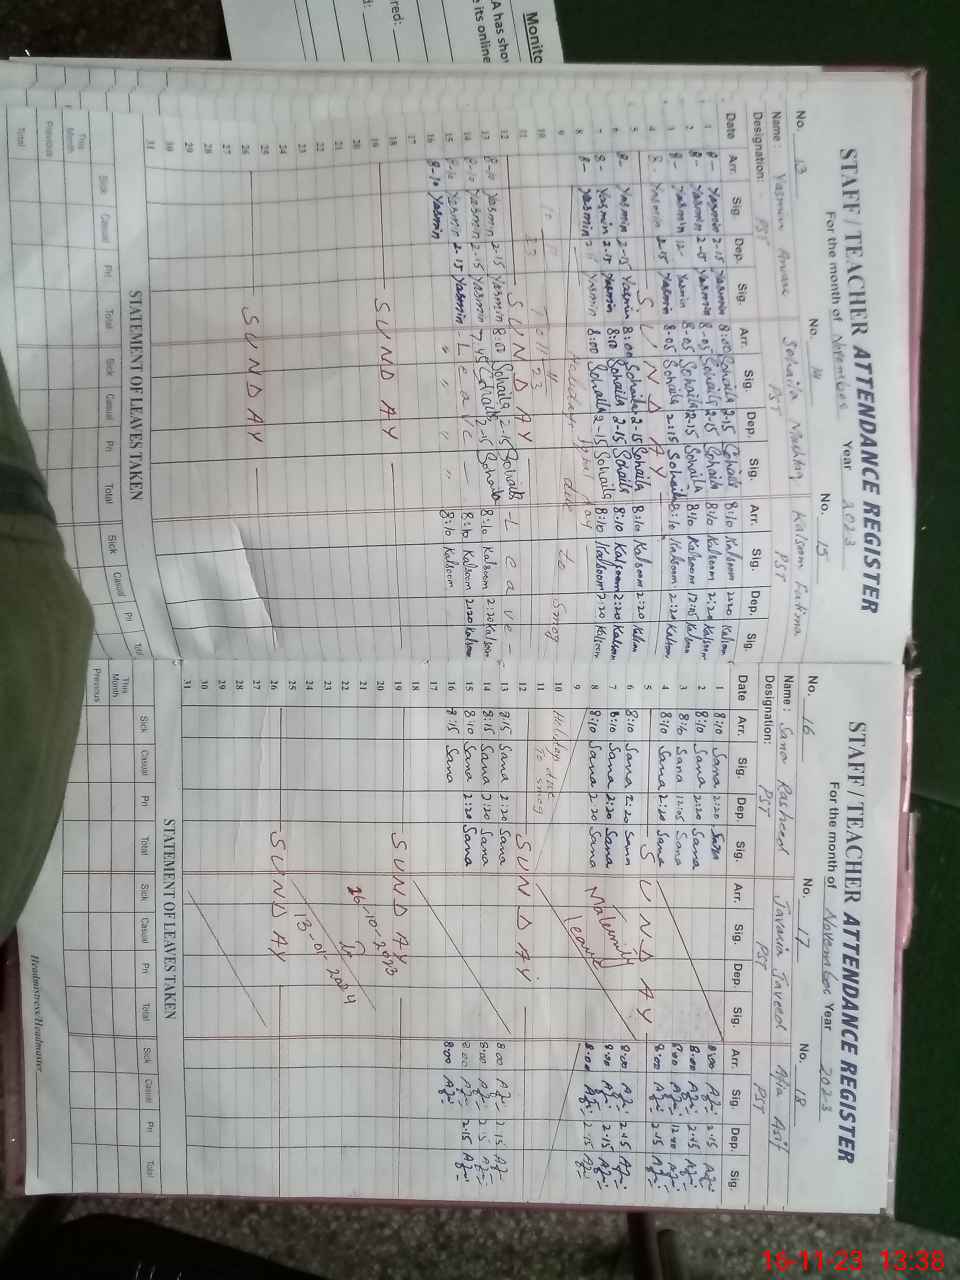 Monito
A has show
its online
red:
STAFF / TEACHER ATTENDANCE REGISTER
For the month of November Year 2023
No. 13 No. 14 No. 15
Name: Yasmin Sohaila Mushtaq Kalsoom Fatima
Designation: PST PST PST
Date Arr. Sig. Dep. Sig. Arr. Sig. Dep. Sig. Arr. Sig. Dep. Sig.
1 8- Yasmin 2-15 Yasmin 8:00 Sohaila 2-15 Sohaila 8:10 Kalsoom 2:20 Kalsoom
2 8- Yasmin 2-15 Yasmin 8-05 Sohaila 2-15 Sohaila 8:10 Kalsoom 2:20 Kalsoom
3 8- Yasmin 12- Yasmin 8-05 Sohaila Sohaila 8:10 Kalsoom 12:05 Kalsoom
4 8- Yasmin 2-15 Yasmin 8-05 Sohaila 2:15 Sohaila 8:10 Kalsoom 2:20 Kalsoom
5 SUNDAY
6 8- Yasmin 2-15 Yasmin 8:00 Sohaila 2-15 Sohaila 8:10 Kalsoom 2:20 Kalsoom
7 8- Yasmin 2-15 Yasmin 8:10 Sohaila 2-15 Sohaila 8:10 Kalsoom 2:20 Kalsoom
8 8- Yasmin 2-15 Yasmin 8:00 Sohaila 2-15 Sohaila 8:10 Kalsoom 2:20 Kalsoom
9 Holiday due to Smog
10
11
12 SUNDAY
13 8-10 Yasmin 2-15 Yasmin 8:00 Sohaila 2-15 Sohaila - Leave -
14 8-10 Yasmin 2-15 Yasmin 7:45 Sohaila 2-15 Sohaila 8:10 Kalsoom 2:20 Kalsoom
15 8-10 Yasmin 2-15 Yasmin - Leave - 8:10 Kalsoom 2:20 Kalsoom
16 8-10 Yasmin " " " " 8:10 Kalsoom
17
18
19 SUNDAY
20
21
22
23
24
25
26 SUNDAY
27
28
29
30
31
STATEMENT OF LEAVES TAKEN
Sick Casual Pri Total Sick Casual Pri Total Sick Casual Pri Tot
This Month
Previous
Total
STAFF / TEACHER ATTENDANCE REGISTER
For the month of November Year 2023
No. 16 No. 17 No. 18
Name: Sana Rasheed Javaria Javeed Afia Asif
Designation: PST PST PST
Date Arr. Sig. Dep. Sig. Arr. Sig. Dep. Sig. Arr. Sig. Dep. Sig.
1 8:10 Sana 2:20 Sana 8:00 Afi 2-15 Afi
2 8:10 Sana 2:20 Sana 8:00 Afi 2-15 Afi
3 8:10 Sana 12:05 Sana 8:00 Afi 12:00 Afi
4 8:10 Sana 2:20 Sana 8:00 Afi 2-15 Afi
5 SUNDAY
6 8:10 Sana 2:20 Sana 8:00 Afi 2-15 Afi
7 8:10 Sana 2:20 Sana Maternity 8:00 Afi 2-15 Afi
8 8:10 Sana 2:20 Sana leave 8:00 Afi 2-15 Afi
9
10 Holiday due
11 To smog
12 SUNDAY
13 8:15 Sana 2:20 Sana 8:00 Afi 2-15 Afi
14 8:15 Sana 2:20 Sana 8:00 Afi 2-15 Afi
15 8:10 Sana 2:20 Sana 8:00 Afi 2-15 Afi
16 8:15 Sana 8:00 Afi
17
18
19 SUNDAY
20 26-10-2023
21 To
22 13-01-2024
23
24
25
26 SUNDAY
27
28
29
30
31
STATEMENT OF LEAVES TAKEN
Sick Casual Pri Total Sick Casual Pri Total Sick Casual Pri Total
This Month
Previous
Headmistress/Headmaster
16-11-23 13:38